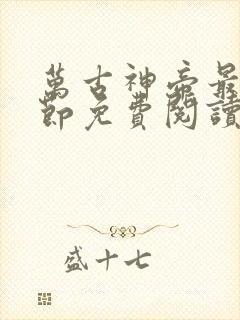 萬古神帝最
節免費閱讀
盛十七